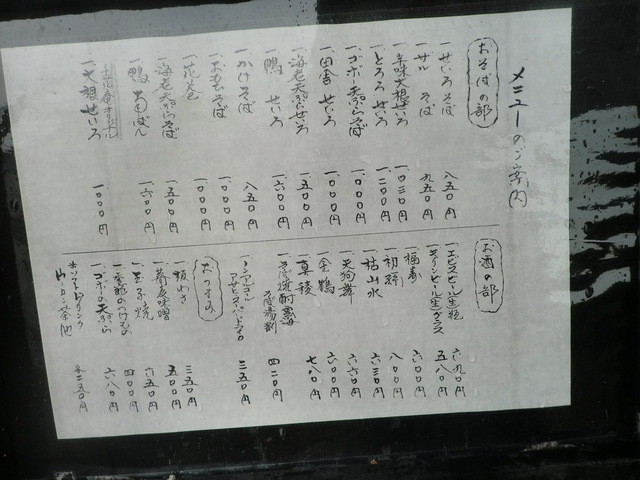 メニューのご案内
おそばの部
一、せいろそば 八五〇円
一、ザルそば 九五〇円
一、辛味大根せいろ 一、〇三〇円
一、とろろせいろ 一、二〇〇円
一、ゴボー天ぷらそば 一、〇〇〇円
一、田舎せいろ 一、〇〇〇円
一、海老天ぷらせいろ 一、五〇〇円
一、鴨せいろ 一、六〇〇円
一、かけそば 八五〇円
一、おかめそば 一、〇〇〇円
一、花巻 一、〇〇〇円
一、海老天ぷらそば 一、五〇〇円
一、鴨南ばん 一、六〇〇円
一、大根せいろ 一、〇〇〇円
お酒の部
一、エビスビール(生)瓶 六九〇円
一、キリンビール(生)グラス 五八〇円
一、福寿 六〇〇円
一、初孫 八〇〇円
一、枯山水 六三〇円
一、天狗舞 六六〇円
一、金鶴 六〇〇円
一、真稜 七八〇円
一、そば焼酎雲海
そば湯割 四二〇円
一、ノンアルコール
アサヒ 三五〇円
おつまみ
一、板わさ 三五〇円
一、蕎麦味噌 五〇〇円
一、玉子焼 六五〇円
一、季節のつけもの 四〇〇円
一、ゴボーの天ぷら 六八〇円
ソフトドリンク
茶他 各二五〇円